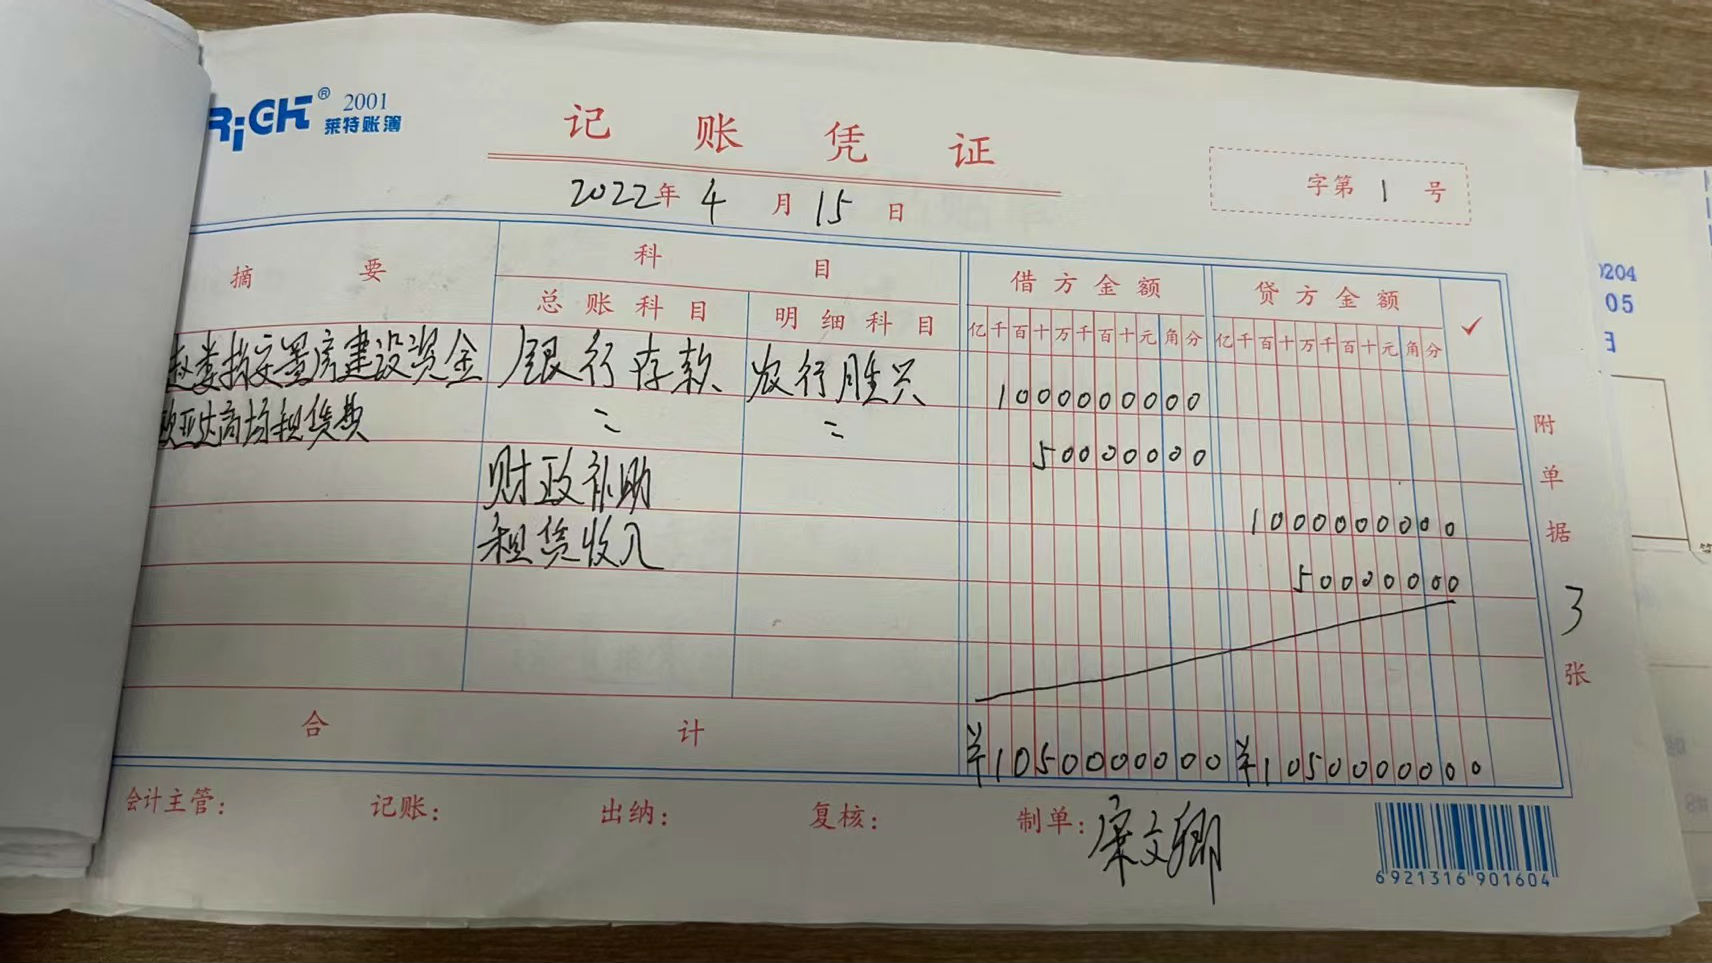 RiGHT® 2001
莱特账簿
记账凭证
2022年4月15日
字第 1 号
摘要
科目
借方金额
贷方金额
✓
总账科目
明细科目
亿千百十万千百十元角分
亿千百十万千百十元角分
安置房建设资金 银行存款 农行胜兴 1000000000
欧亚达商场租赁费 〃 〃 50000000
财政补助 1000000000
租赁收入 50000000
合计 ¥1050000000 ¥1050000000
附单据 3 张
会计主管:
记账:
出纳:
复核:
制单:
文卿
6 921316 901604
0204
05
日